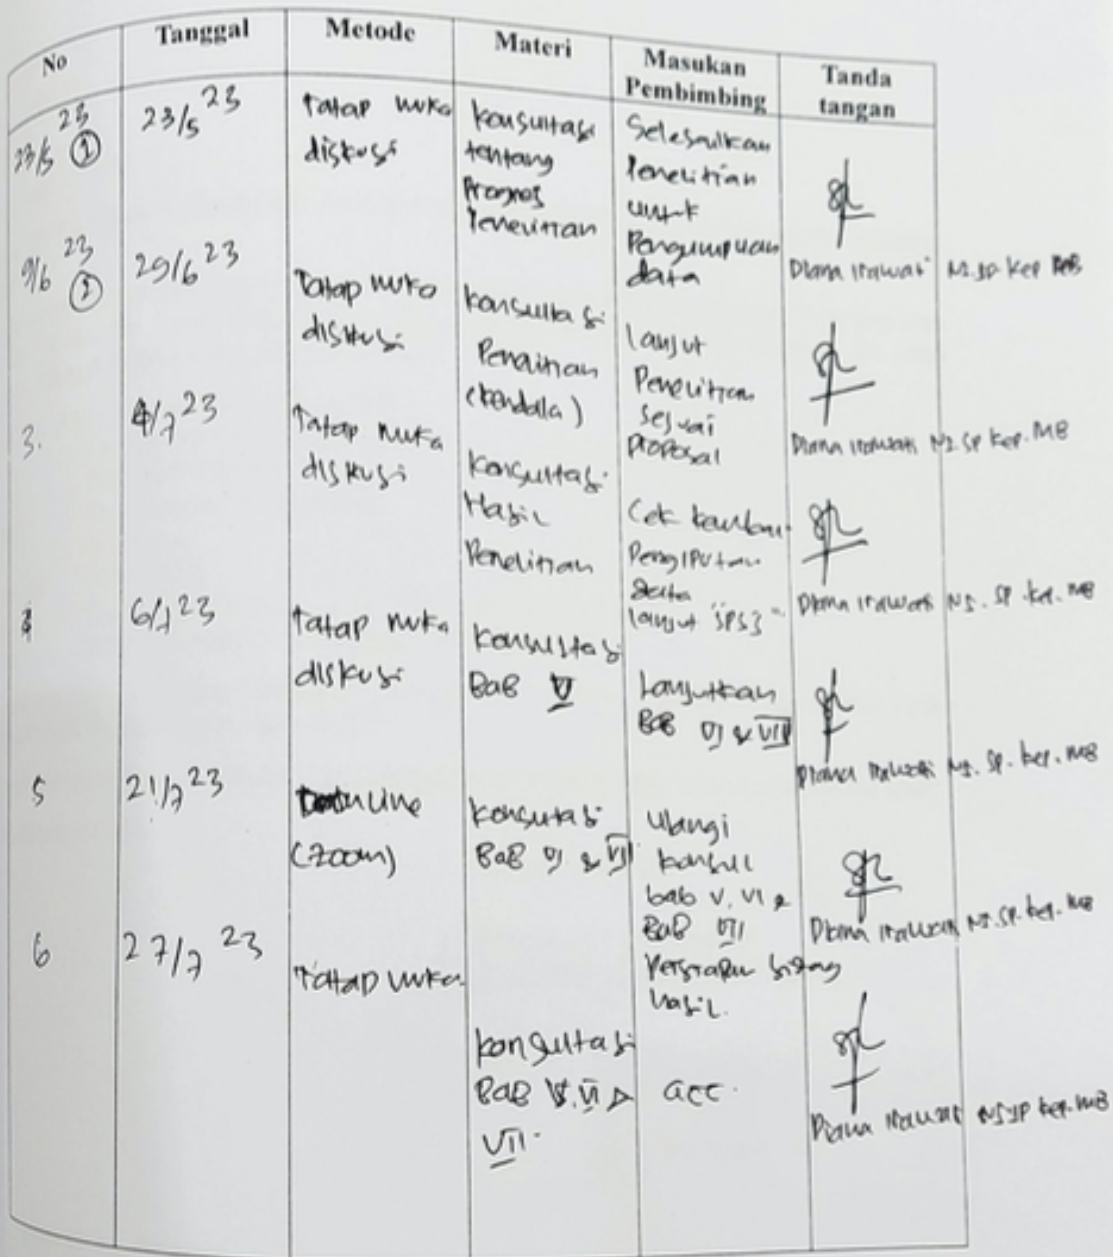 No Tanggal Metode Materi Masukan Pembimbing Tanda tangan
23/5 23 ① 23/5 23 Tatap muka
diskusi
konsultasi
tentang
Progres
Penelitian
Selesaikan
Penelitian
untuk
Pengumpulan
data
Diana Irawati Ns. Sp Kep MB
9/6 23 ② 29/6 23 Tatap muka
diskusi
konsultasi
Penelitian
(kendala)
lanjut
Penelitian
sesuai
proposal
Diana Irawati Ns. Sp Kep. MB
3. 4/7 23 Tatap muka
diskusi
konsultasi
Hasil
Penelitian
Cek kembali
Penginputan
data
lanjut "SPSS"
Diana Irawati Ns. Sp. Kep. MB
4 6/7 23 Tatap muka
diskusi
konsultasi
BaB V
Lanjutkan
BaB VI & VII
Diana Irawati Ns. Sp. Kep. MB
5 21/7 23
(Zoom)
konsultasi
BaB VI & VII
ulangi
konsul
bab V, VI &
BaB VII
Persiapan sidang
hasil.
Diana Irawati Ns. Sp. Kep. MB
6 27/7 23 Tatap muka
konsultasi
BaB V, VI &
VII.
acc.
Diana Irawati Ns Sp Kep. MB